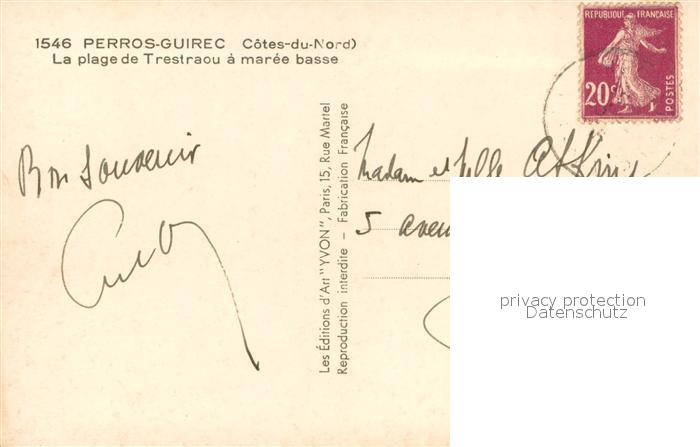 1546 PERROS-GUIREC Côtes-du-Nord)
La plage de Trestraou à marée basse
Bon Souvenir
Les Éditions d'Art "YVON", Paris, 15, Rue Martel
Reproduction interdite – Fabrication Française
REPUBLIQUE FRANÇAISE
20c
POSTES
Madam et Mlle
5 aven
privacy protection
Datenschutz